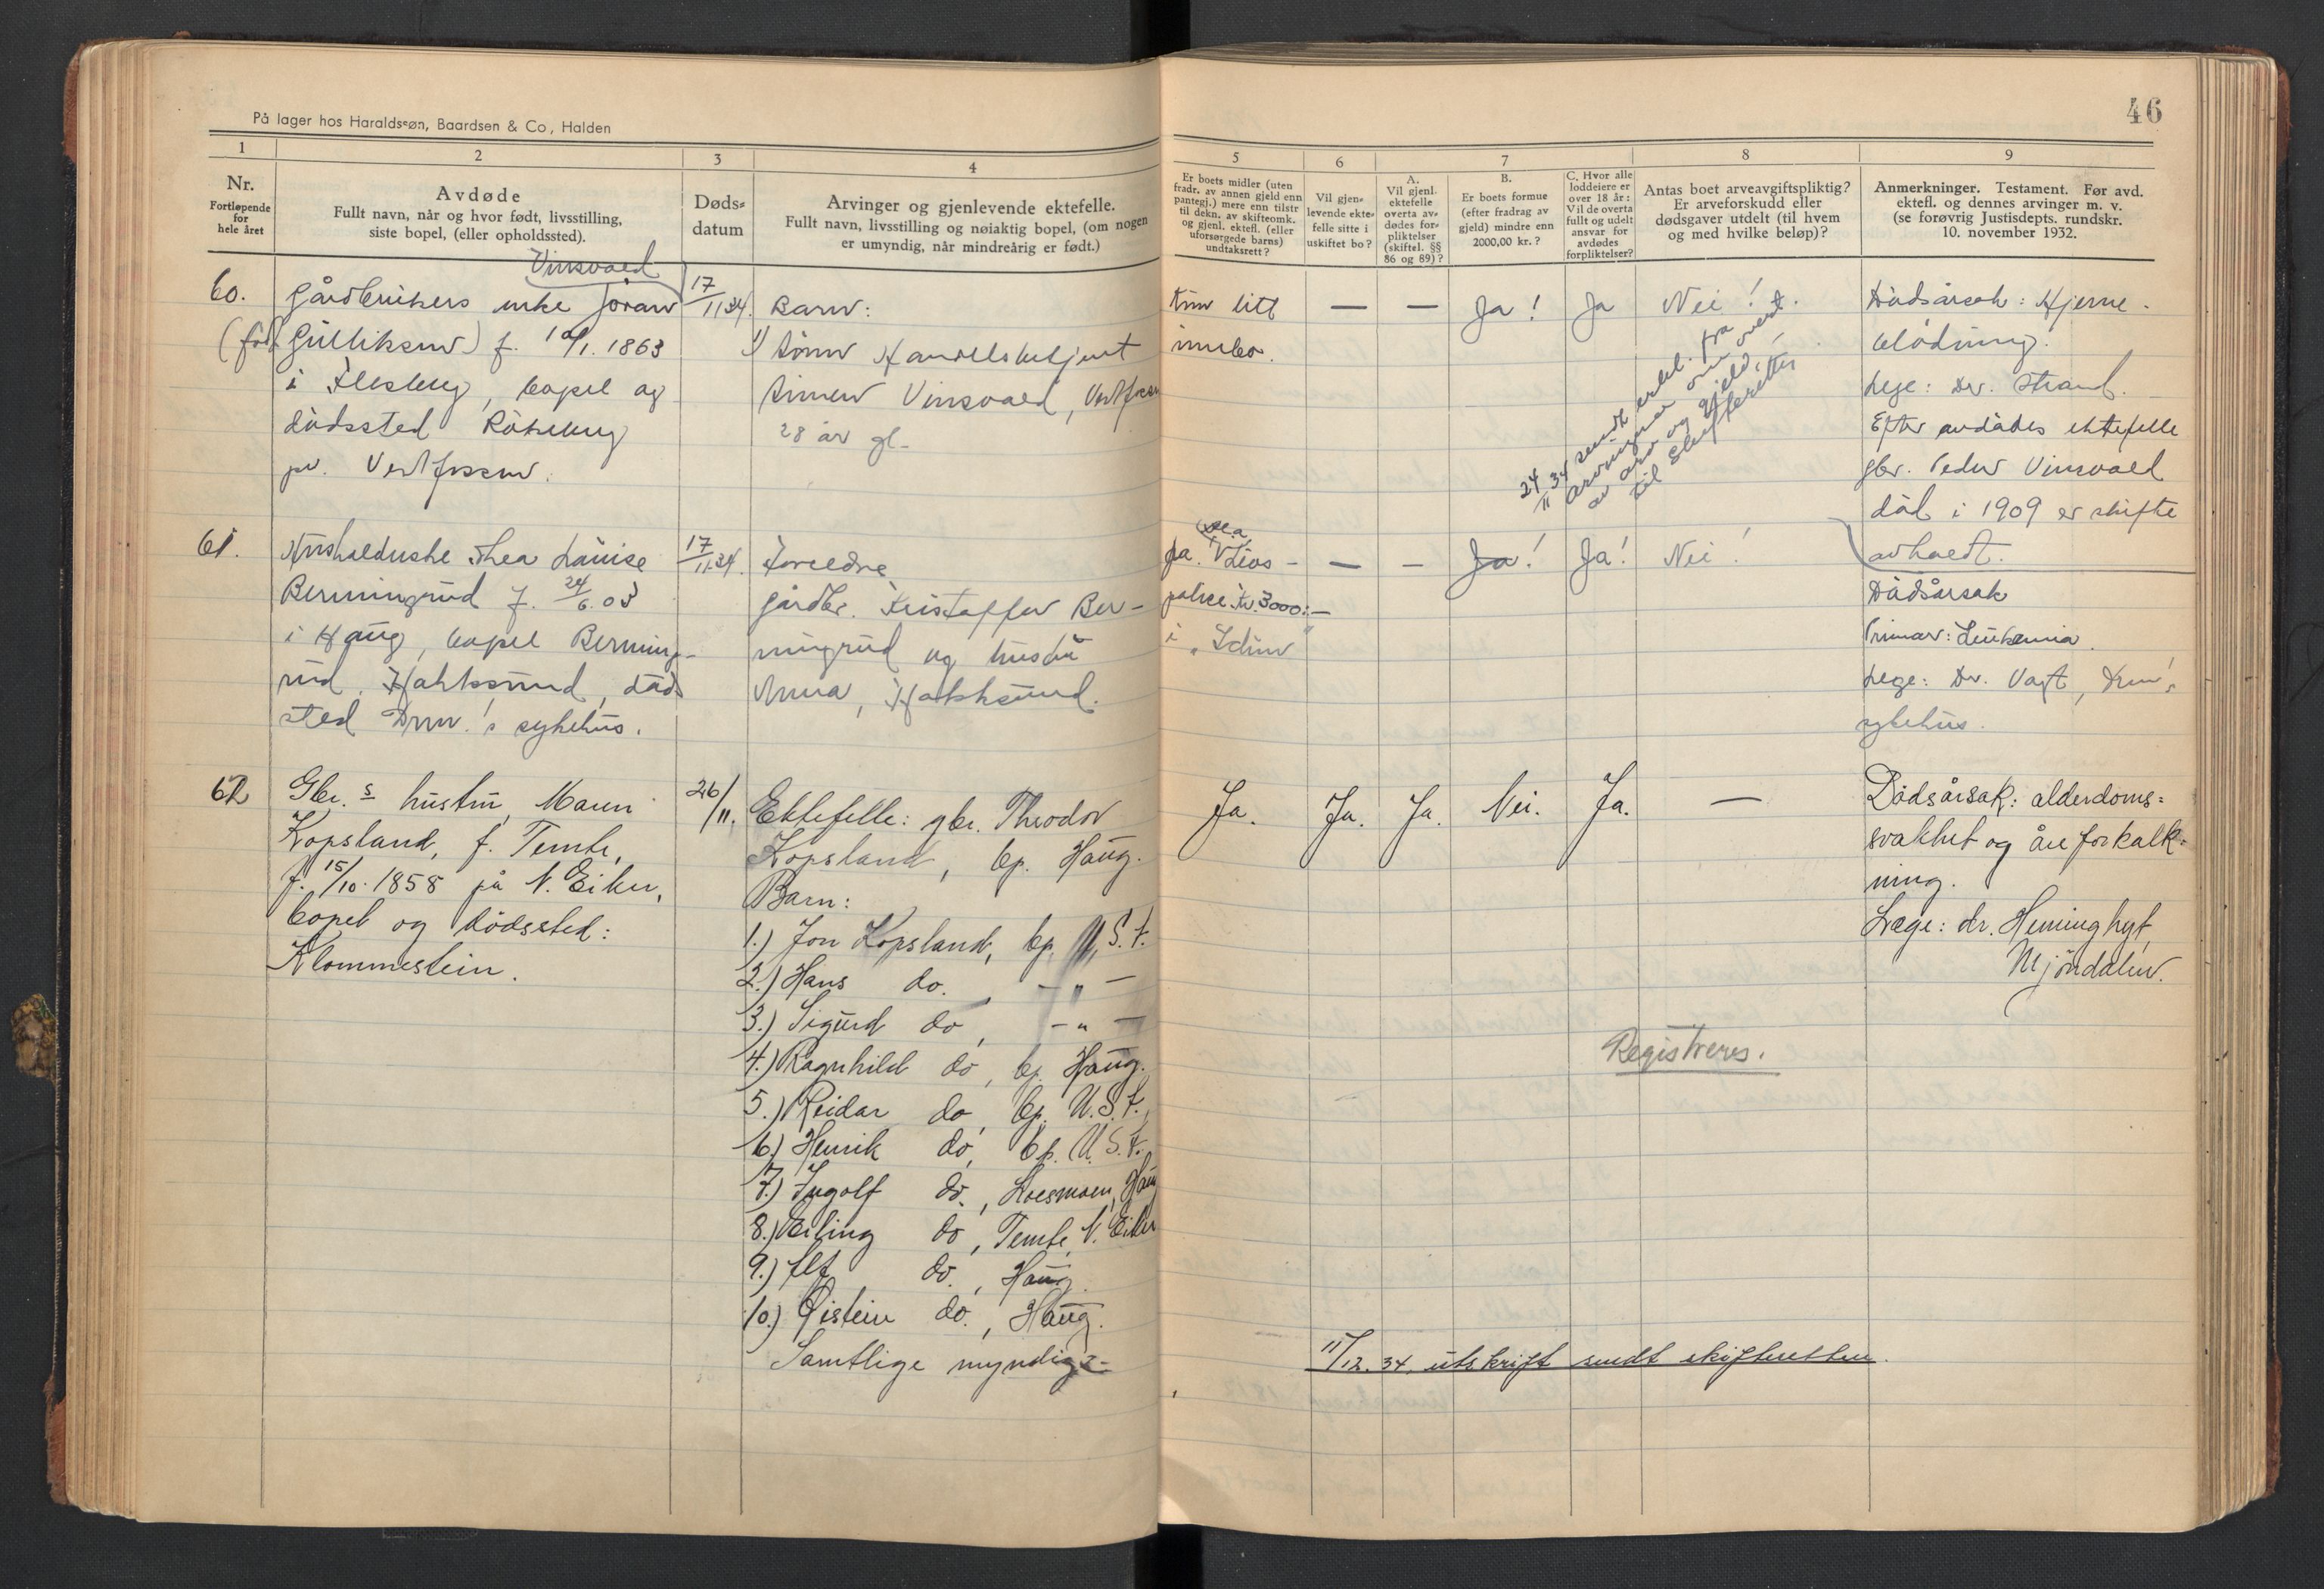 På lager hos Haraldssøn, Baardsen & Co, Halden
46
1
2
3
4
5
6
7
8
9
Nr.
Fortløpende
for
hele året
Avdøde
Fullt navn, når og hvor født, livsstilling,
siste bopel, (eller opholdssted).
Døds-
datum
Arvinger og gjenlevende ektefelle.
Fullt navn, livsstilling og nøiaktig bopel, (om nogen
er umyndig, når mindreårig er født.)
Er boets midler (uten
fradr. av annen gjeld enn
pantegj.) mere enn tilstr
til dekn. av skifteomk.
og gjenl. ektefl. (eller
uforsørgede barns)
undtaksrett?
Vil gjen-
levende ekte-
felle sitte i
uskiftet bo?
A.
Vil gjenl.
ektefelle
overta av-
dødes for-
pliktelser
(skiftel. §§
86 og 89)?
B.
Er boets formue
(efter fradrag av
gjeld) mindre enn
2000,00 kr.?
C. Hvor alle
loddeiere er
over 18 år:
Vil de overta
fullt og udelt
ansvar for
avdødes
forpliktelser?
Antas boet arveavgiftspliktig?
Er arveforskudd eller
dødsgaver utdelt (til hvem
og med hvilke beløp)?
Anmerkninger. Testament. Før avd.
ektefl. og dennes arvinger m. v.
(se forøvrig Justisdepts. rundskr.
10. november 1932.
60.
Vinsvold
Gårdbrukers enke Jöran
(född Gulliksen) f. 10/1. 1863
i Flesberg, bopel og
dödssted Rökeberg
pr. Vestfossen.
17/11 34.
Barn:
1) Sönn Handelsbetjent
Simen Vinsvold, Vestfossen
28 år gl.
Kun litt
innbo.
— — Ja! Ja Nei!
24/11 34 sendt erkl. fra
arvingene om overt.
av arv og gjeld,
til Skifteretten
Dödsårsak: Hjerne-
blödning.
Lege: Dr. Strand.
Efter avdödes ektefelle
gbr. Peder Vinsvold
död i 1909 er skifte
avholdt.
61.
Husholderske Thea Louise
Bermingrud f. 24/6. 03
i Haug, bopel Berming-
rud, Hokksund, döds
sted Drm.'s sykehus.
17/11.34.
Foreldre
gårdbr. Kristoffer Ber-
mingrud og hustru
Anna, Hokksund.
Ja. Livs-
police kr. 3000:-
i "Idun"
— — Ja! Ja! Nei!
Dödsårsak
Primær: Leukemia.
Lege: Dr. Vogt, Drm's
sykehus.
62
Gbr.s hustru, Maren
Kopsland, f. Temte,
f. 15/10. 1858 på N. Eiker,
bopel og dödssted:
Klommestein.
26/11.
Ektefelle: gbr. Theodor
Kopsland, bp. Haug.
Barn:
1.) Jon Kopsland, bp. U.S.A.
2.) Hans do. , — " —
3.) Sigurd do , — " —
4.) Ragnhild do , bp. Haug.
5.) Reidar do , bp. U.S.A.,
6.) Henrik do , bp. U.S.A.
7.) Ingolf do. , Loesmoen, Haug
8.) Erling do , Temte, N. Eiker
9.) Alf do. , Haug
10.) Øistein do. , Haug.
Samtlige myndige-
Ja. Ja. Ja. Nei. Ja. —
Dödsårsak: alderdoms=
svakhet og åreforkalk=
ning.
Læge: dr. Heminghyt,
Mjöndalen.
Registreres.
11/12. 34. utskrift sendt skifteretten.